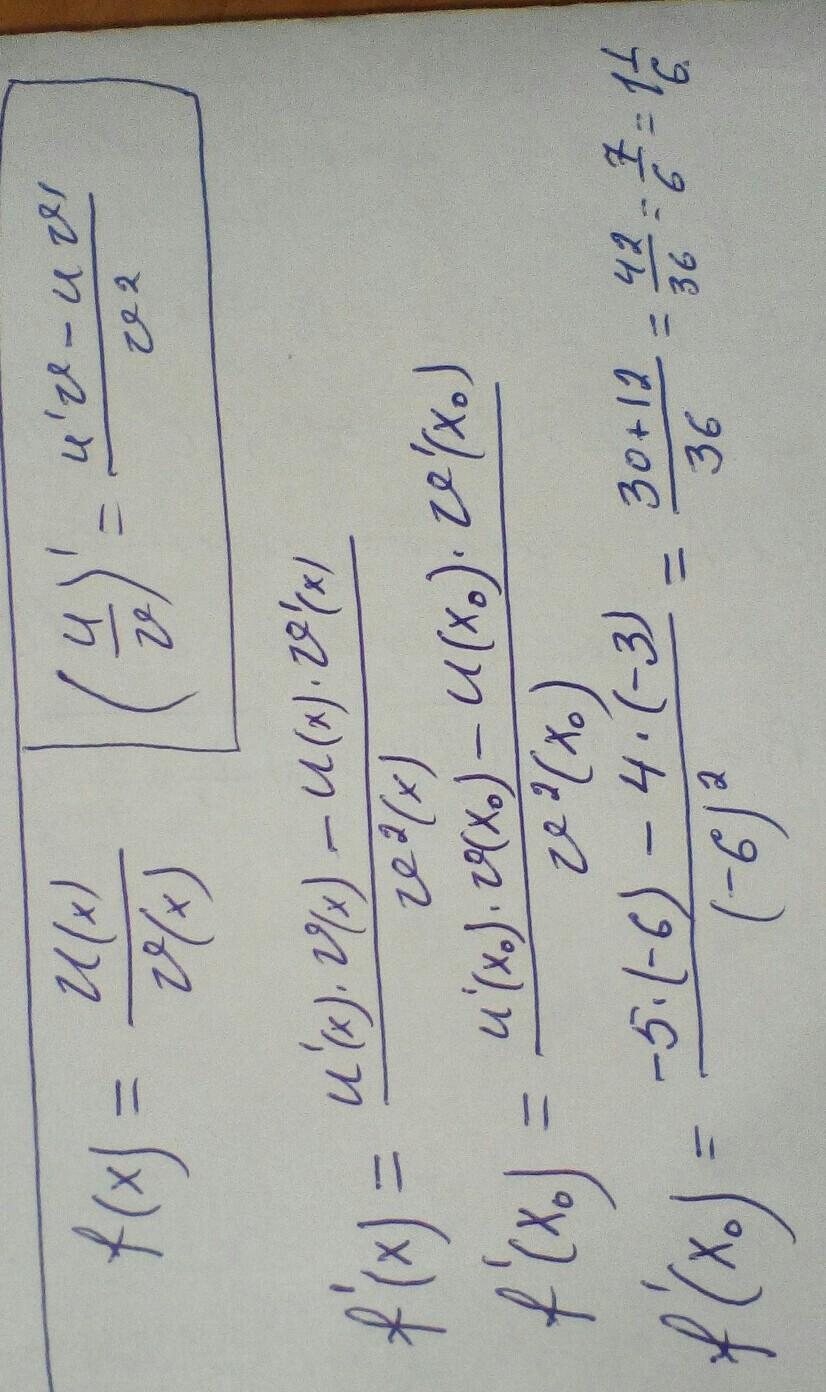 f(x) = u(x)/v(x) (u/v)' = (u'v - uv')/v²
f'(x) = (u'(x)·v(x) - u(x)·v'(x))/v²(x)
f'(x₀) = (u'(x₀)·v(x₀) - u(x₀)·v'(x₀))/v²(x₀)
f'(x₀) = (-5·(-6) - 4·(-3))/(-6)² = (30+12)/36 = 42/36 = 7/6 = 1 1/6